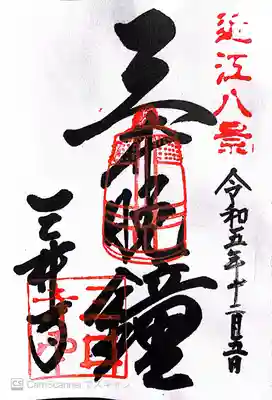 近江八景
令和五年十二月五日
三井晩鐘
三井寺
CS CamScanner でスキャン